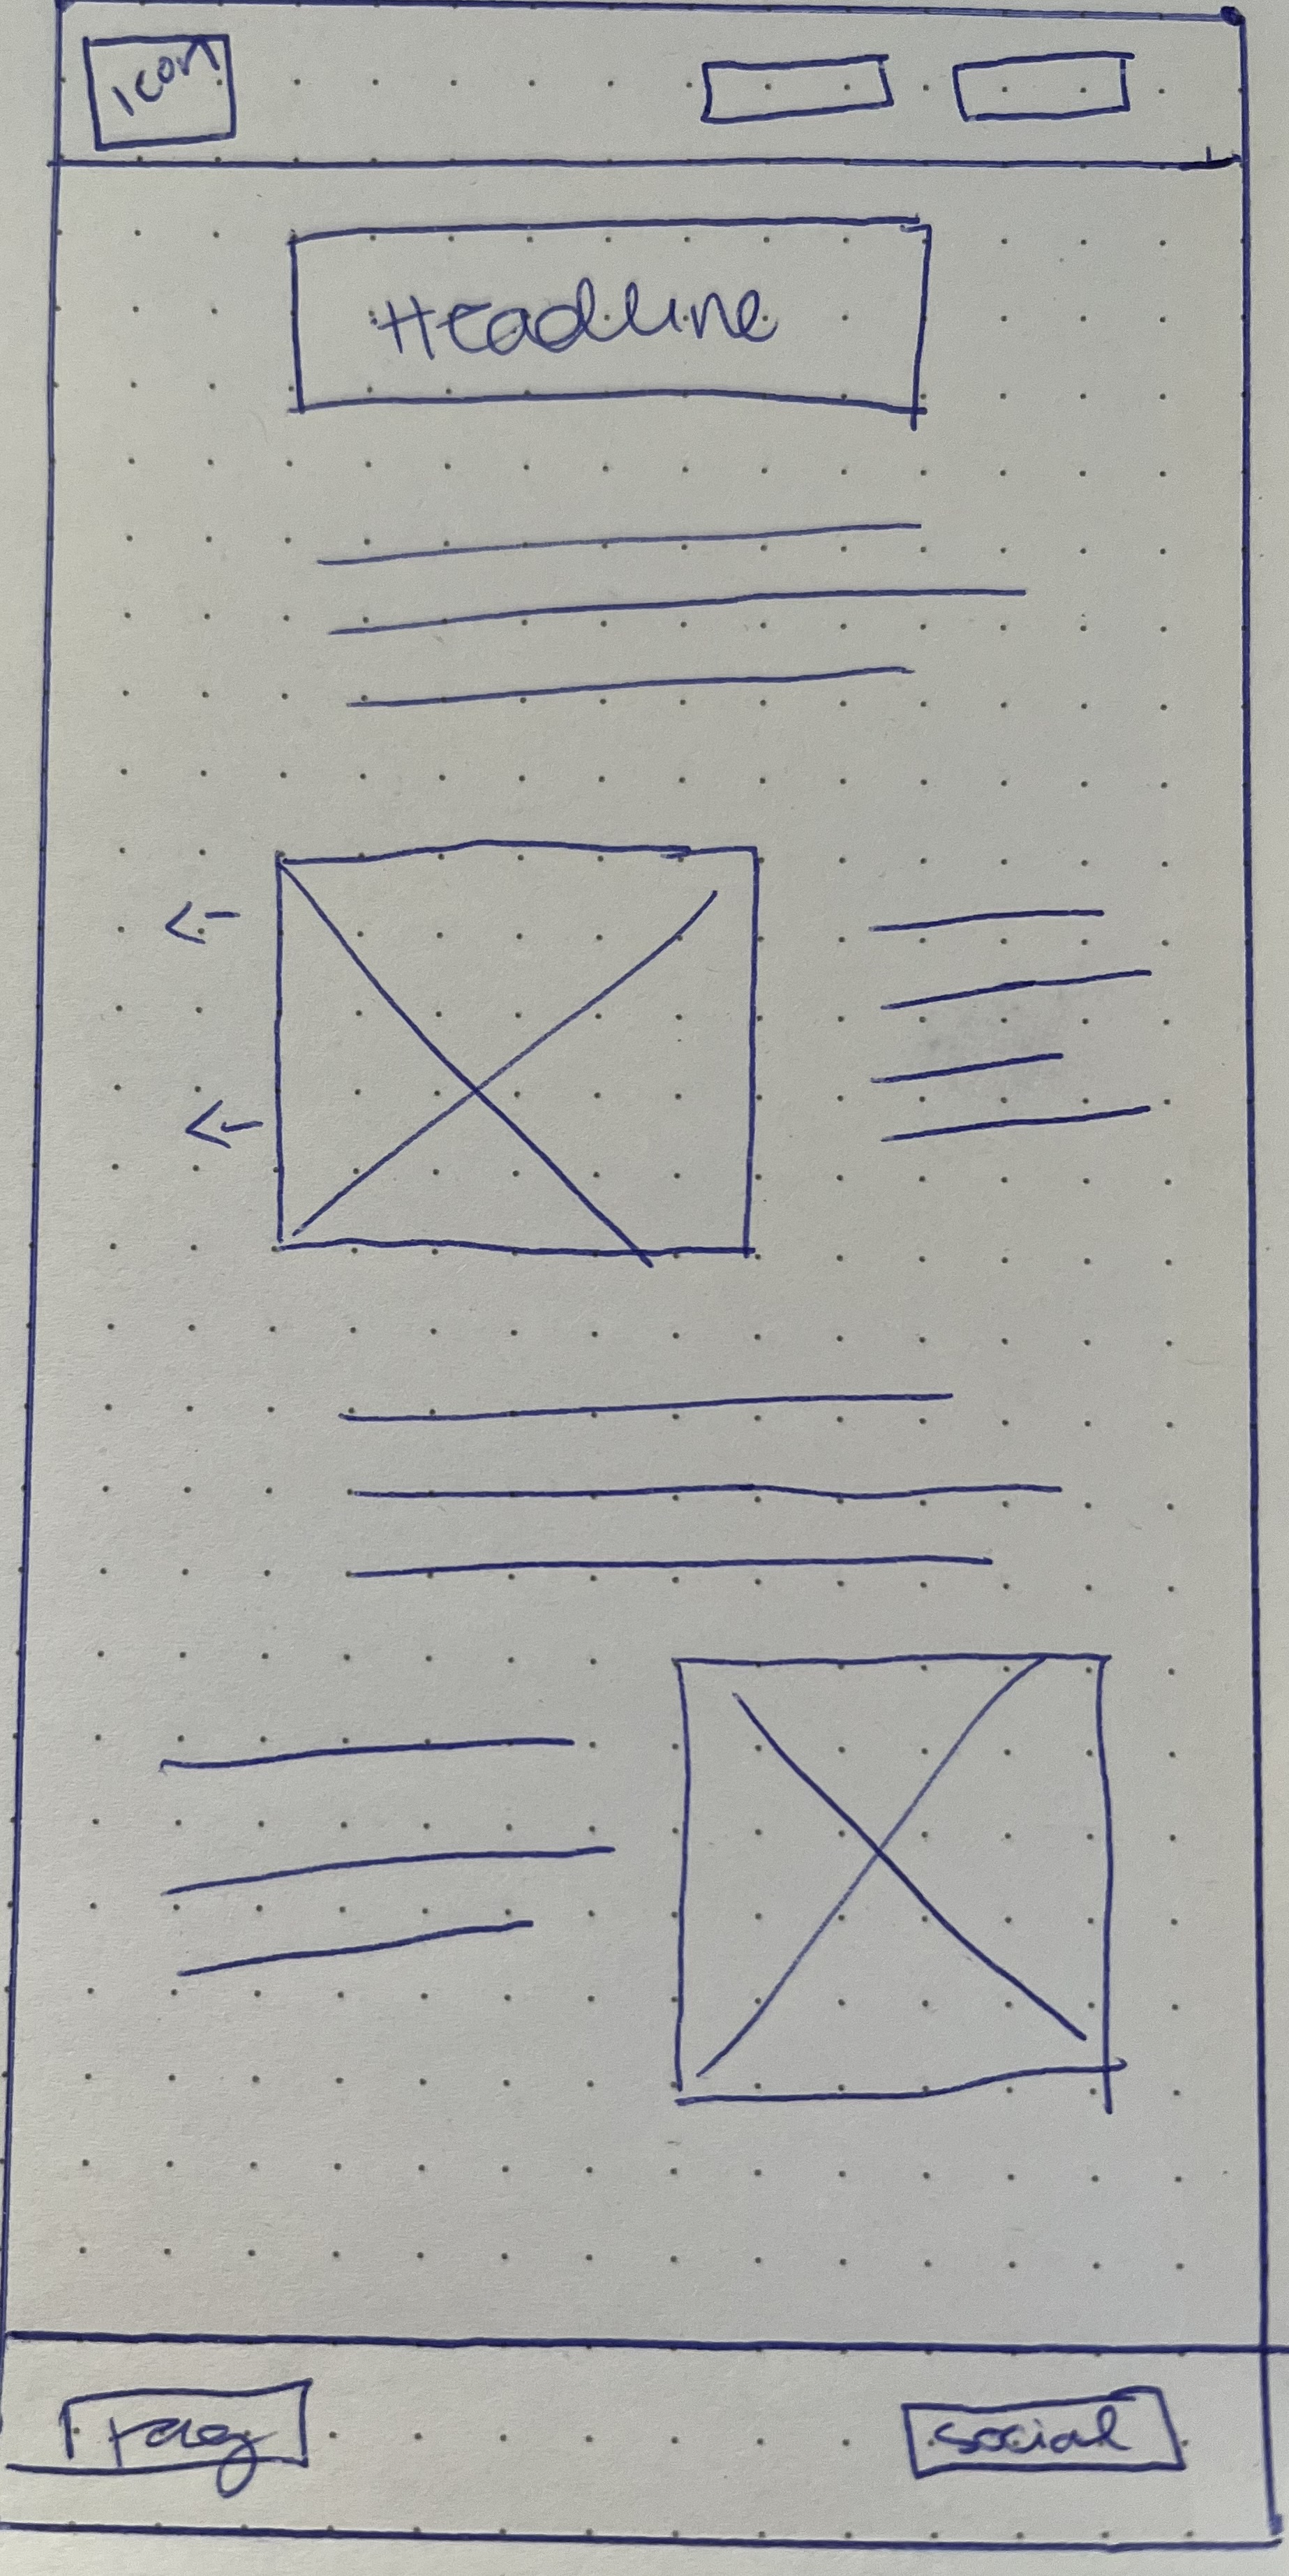 Icon
Headline
social